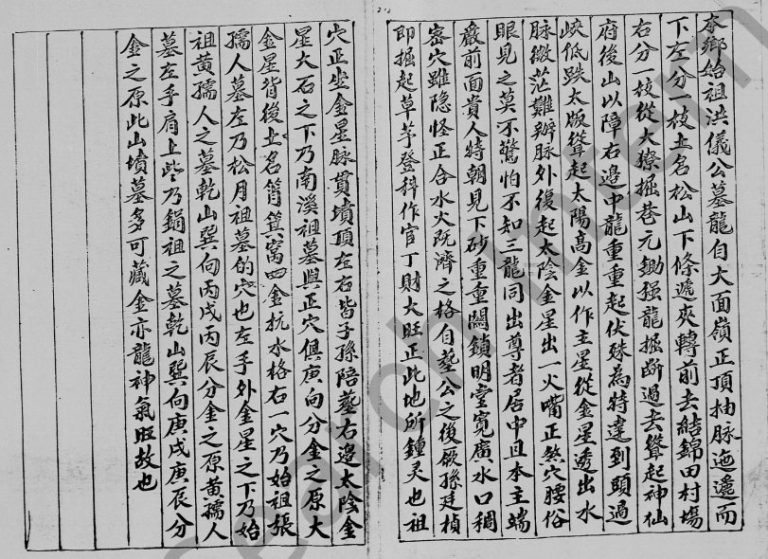 本鄉始祖洪儀公墓龍自大面嶺正頂抽脉迤邐而
下左分一枝土名松山下條遞夾轉前去結錦田村塲
右分一枝從大獠掘巷元鋤强龍掘斷過去聳起神仙
府後山以障右邉中龍重重起伏殊為特達到頭過
峽低跌太版聳起太陽高金以作主星從金星透出水
脉微茫難辧脉外復起太陰金星出一火嘴正煞穴腰俗
眼見之莫不驚怕不知三龍同出尊者居中且本主端
嚴前面貴人特朝見下砂重重關鎖明堂寛廣水口稠
密穴雖隐怪正合水火旣濟之格自塟公之後厥孫廷楨
即掘起草茅登科作官丁財大旺正此地所鍾灵也祖
穴正坐金星脉貫墳頂左右皆子孫陪塟右邉太陰金
星大石之下乃南溪祖墓與正穴俱庚向分金之原大
金星背後土名筲箕窩四金抗水格右一穴乃始祖張
孺人墓左乃松月祖墓的穴也左手外金星之下乃始
祖黄孺人之墓乾山巽向丙戌丙辰分金之原黄孺人
墓左手肩上些乃鋗祖之墓乾山巽向庚戌庚辰分
金之原此山墳墓多可藏金亦龍神氣旺故也